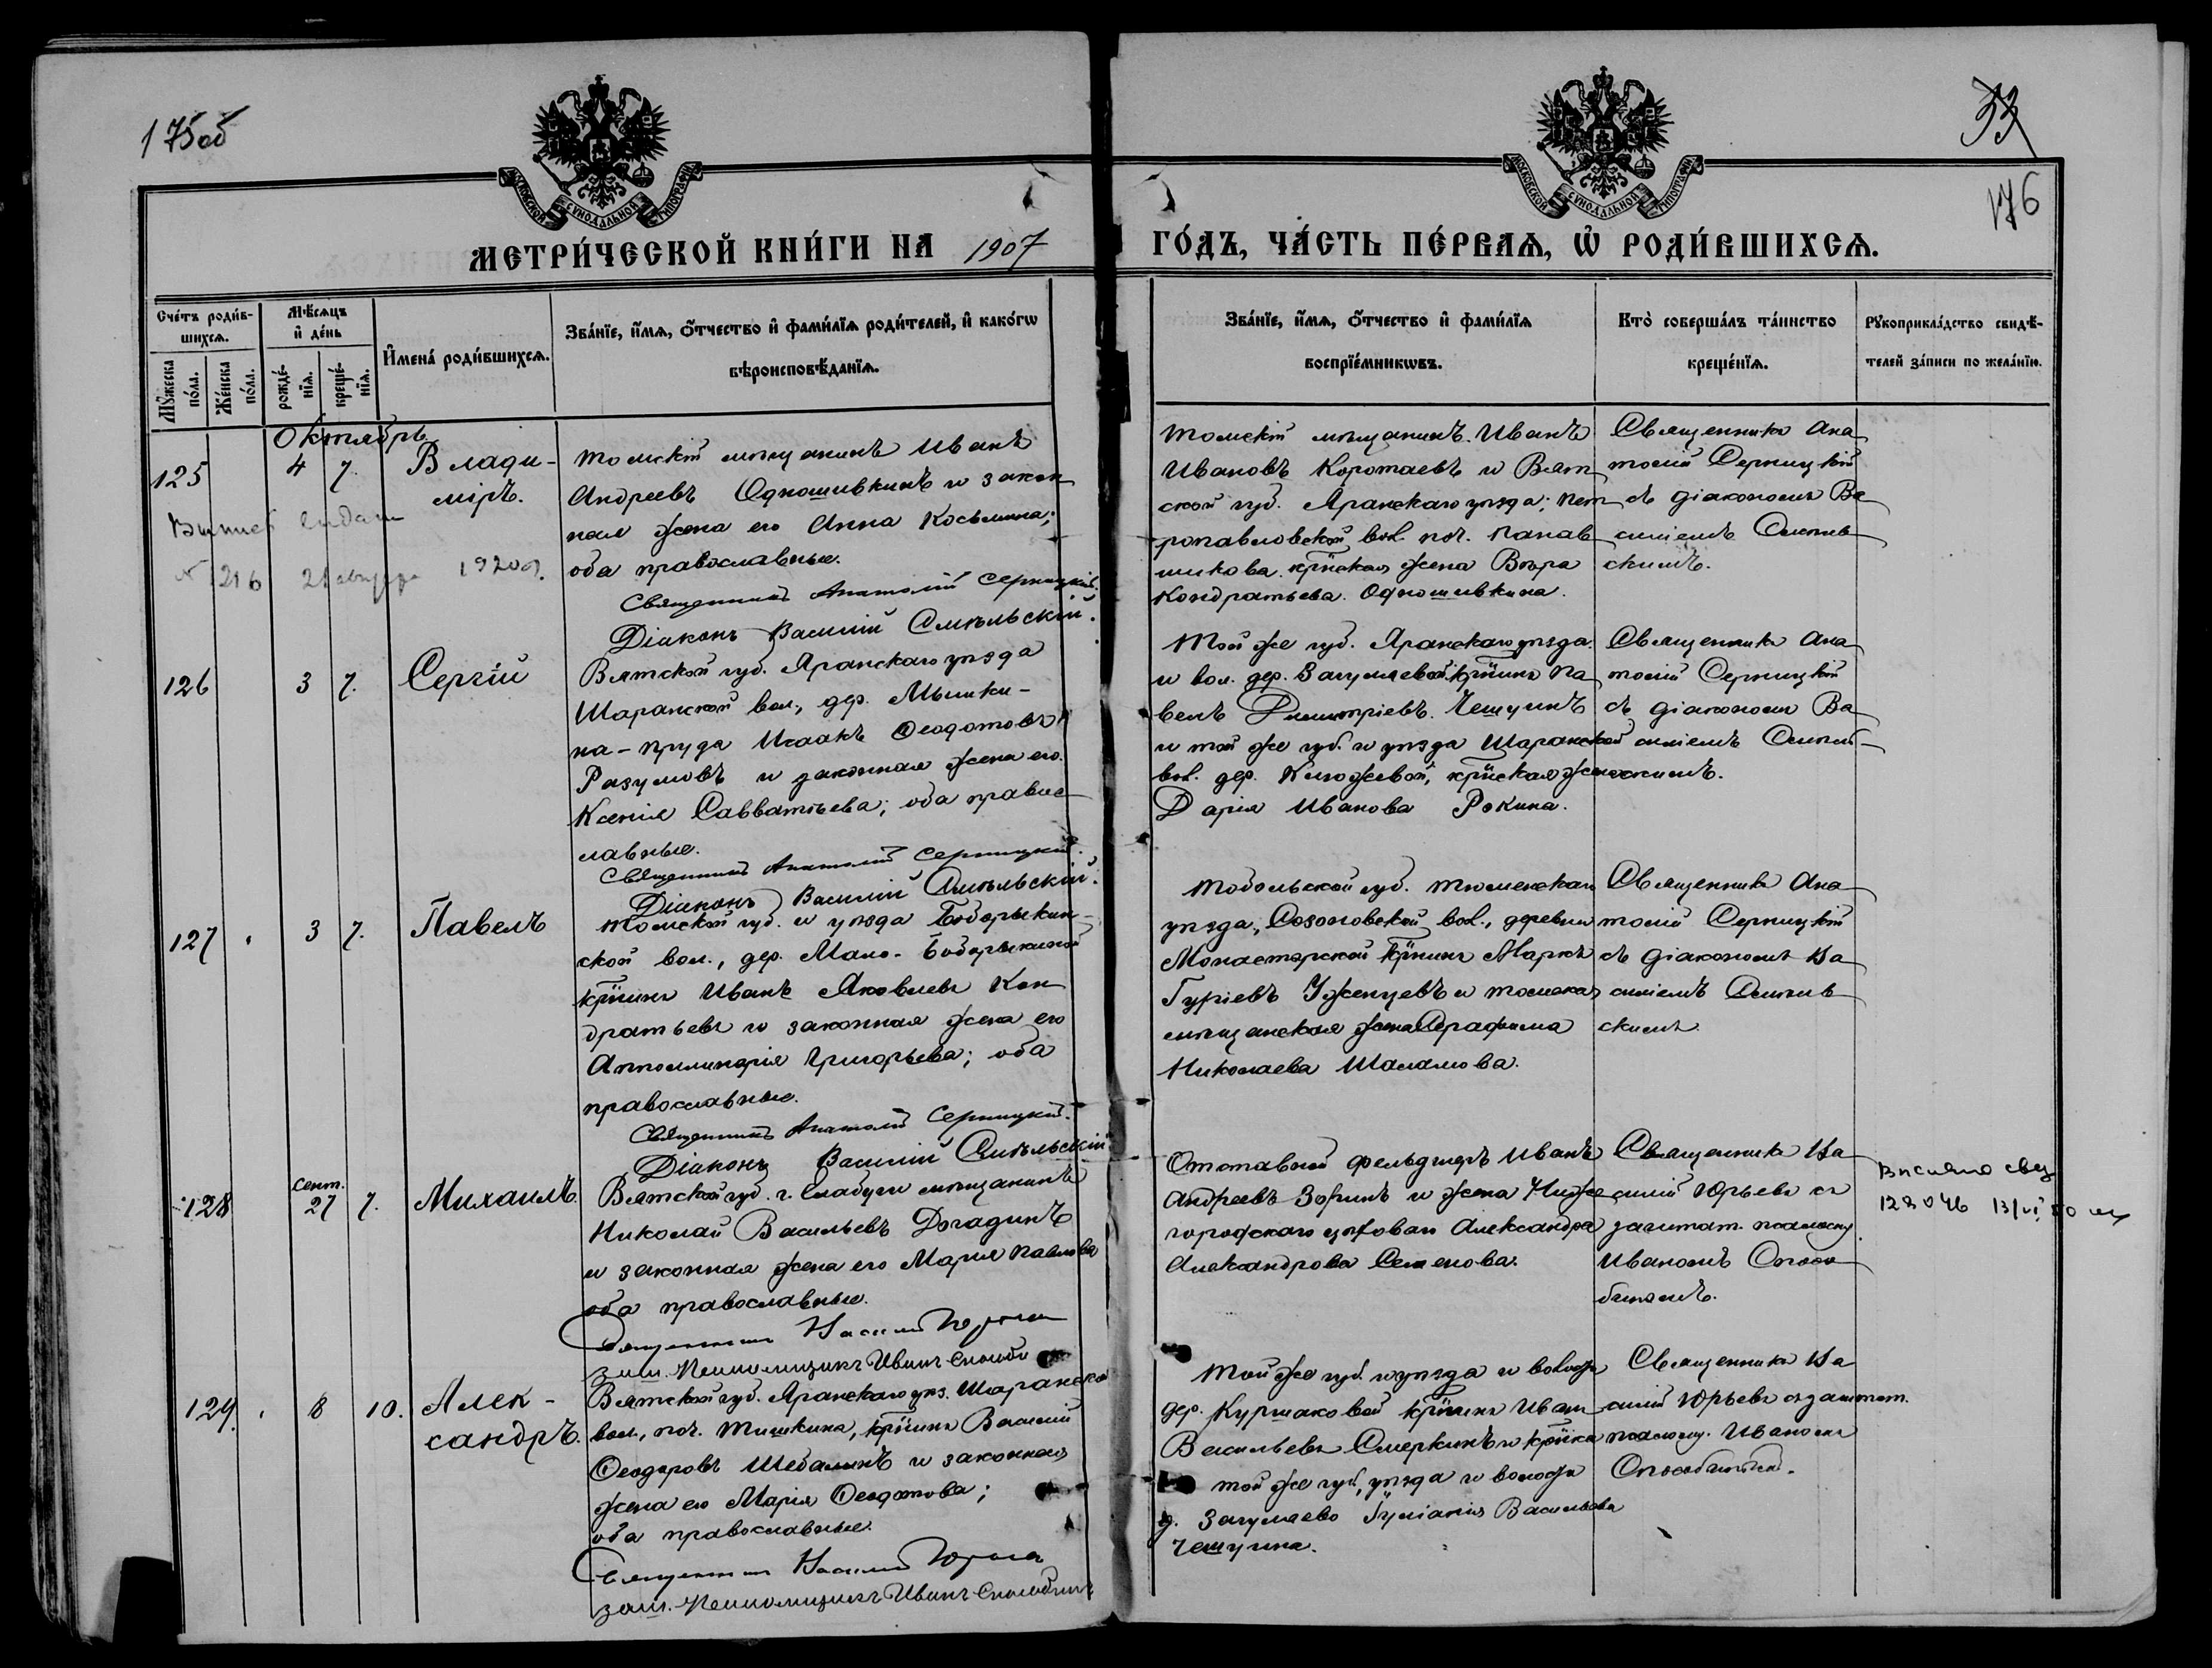 175 об
33
176
МОСКОВСКОЙ СѴНОДАЛЬНОЙ ТИПОГРАФІИ
МОСКОВСКОЙ СѴНОДАЛЬНОЙ ТИПОГРАФІИ
МЕТРИ́ЧЕСКОЙ КНИ́ГИ НА 1907
ГО́ДЪ, ЧА́СТЬ ПЕ́РВАѦ, Ѡ҆ РОДИ́ВШИХСѦ.
Сче́тъ роди́в-
шихсѧ.
Мꙋ́жеска по́ла.
Же́нска по́ла.
Мѣ́сѧцъ
и҆ де́нь
рожде́-
нїѧ.
креще́-
нїѧ.
И҆мена́ роди́вшихсѧ.
Зва́нїе, и҆́мѧ, ѻ҆́тчество и҆ фами́лїѧ роди́телей, и҆ како́гѡ
вѣроисповѣ́данїѧ.
Зва́нїе, и҆́мѧ, ѻ҆́тчество и҆ фами́лїѧ
воспрїе́мникѡвъ.
Кто̀ соверша́лъ та́инство
креще́нїѧ.
Рꙋкоприкла́дство свидѣ́-
телей за́писи по жела́нїю.
Октябрь
125 4 7. Влади-
міръ.
216 21 августа 1920 г.
Томскій мѣщанинъ Иванъ
Андреевъ Одношивкинъ и закон
ная жена его Анна Косьмина;
оба православные.
Священникъ Анатолій Серницкій.
Діаконъ Василій Смѣльскій.
Томскій мѣщанинъ Иванъ
Ивановъ Коротаевъ и Вят
ской губ. Яранскаго уѣзда; Пет
ропавловской вол. поч. Панав
шикова. крпская жена Вѣра
Кондратьева Одношивкина.
Священникъ Ана
толій Серницкій
съ діакономъ Ва
силіемъ Смѣль
скимъ.
126 3 7. Сергій
Вятской губ. Яранскаго уѣзда
Шаранской вол., дер. Мышки-
на-пруда Исаакъ Ѳеодотовъ
Разумовъ и законная жена его
Ксенія Савватіева; оба правос
лавные.
Священникъ Анатолій Серницкій.
Діаконъ Василій Смѣльскій.
Той же губ. Яранскаго уѣзда
и вол. дер. Загуляевой крпнинъ Па
велъ Димитріевъ Чешуинъ
и той же губ. и уѣзда Шаранской
вол. дер. крпская жена
Дарія Иванова Рокина.
Священникъ Ана
толій Серницкій
съ діакономъ Ва
силіемъ Смѣль
скимъ.
127 3 7. Павелъ
Томской губ. и уѣзда Бобарыкин-
ской вол., дер. Мало-Бобарыкиной
крпнинъ Иванъ Яковлевъ Кон
дратьевъ и законная жена его
Апполинарія Григорьева; оба
православные.
Священникъ Анатолій Серницкій.
Діаконъ Василій Смѣльскій
Тобольской губ. Тюменскаго
уѣзда, Созоновской вол., деревни
Монастырской крпнинъ Маркъ
Гуріевъ Уженцевъ и томская
мѣщанская жена Серафима
Николаева Шаламова.
Священникъ Ана
толій Серницкій
съ діакономъ Ва
силіемъ Смѣль
скимъ.
128 сент. 27 7. Михаилъ.
Вятской губ. г. Елабуги мѣщанинъ
Николай Васильевъ Догадинъ
и законная жена его Марія Павлова
оба православные.
Священникъ Василій Юрьевъ
заш. Псаломщикъ Иванъ
Отставной фельдшеръ Иванъ
Андреевъ Зоринъ и жена Ниже
городскаго цеховаго Александра
Александрова Семенова.
Священникъ Ва
силій Юрьевъ съ
заштат. псаломщ.
Иваномъ
129 8 10. Алек-
сандръ.
Вятской губ. Яранскаго уѣз. Шаранско
вол., поч. Тишкина, крпнинъ Василій
Ѳеодоровъ Шебалинъ и законная
жена его Марія Ѳеодотова;
оба православные.
Священникъ Василій Юрьевъ
заш. Псаломщикъ Иванъ
Той же губ. и уѣзда и волости
дер. Куршаковой крпнинъ Иван
Васильевъ Смеркинъ и крпнка
той же губ., уѣзда и волости
д. Загуляево Іуліанія Васильева
Чешуина.
Священникъ Ва
силій Юрьевъ съ заштат.
псаломщ. Иваномъ